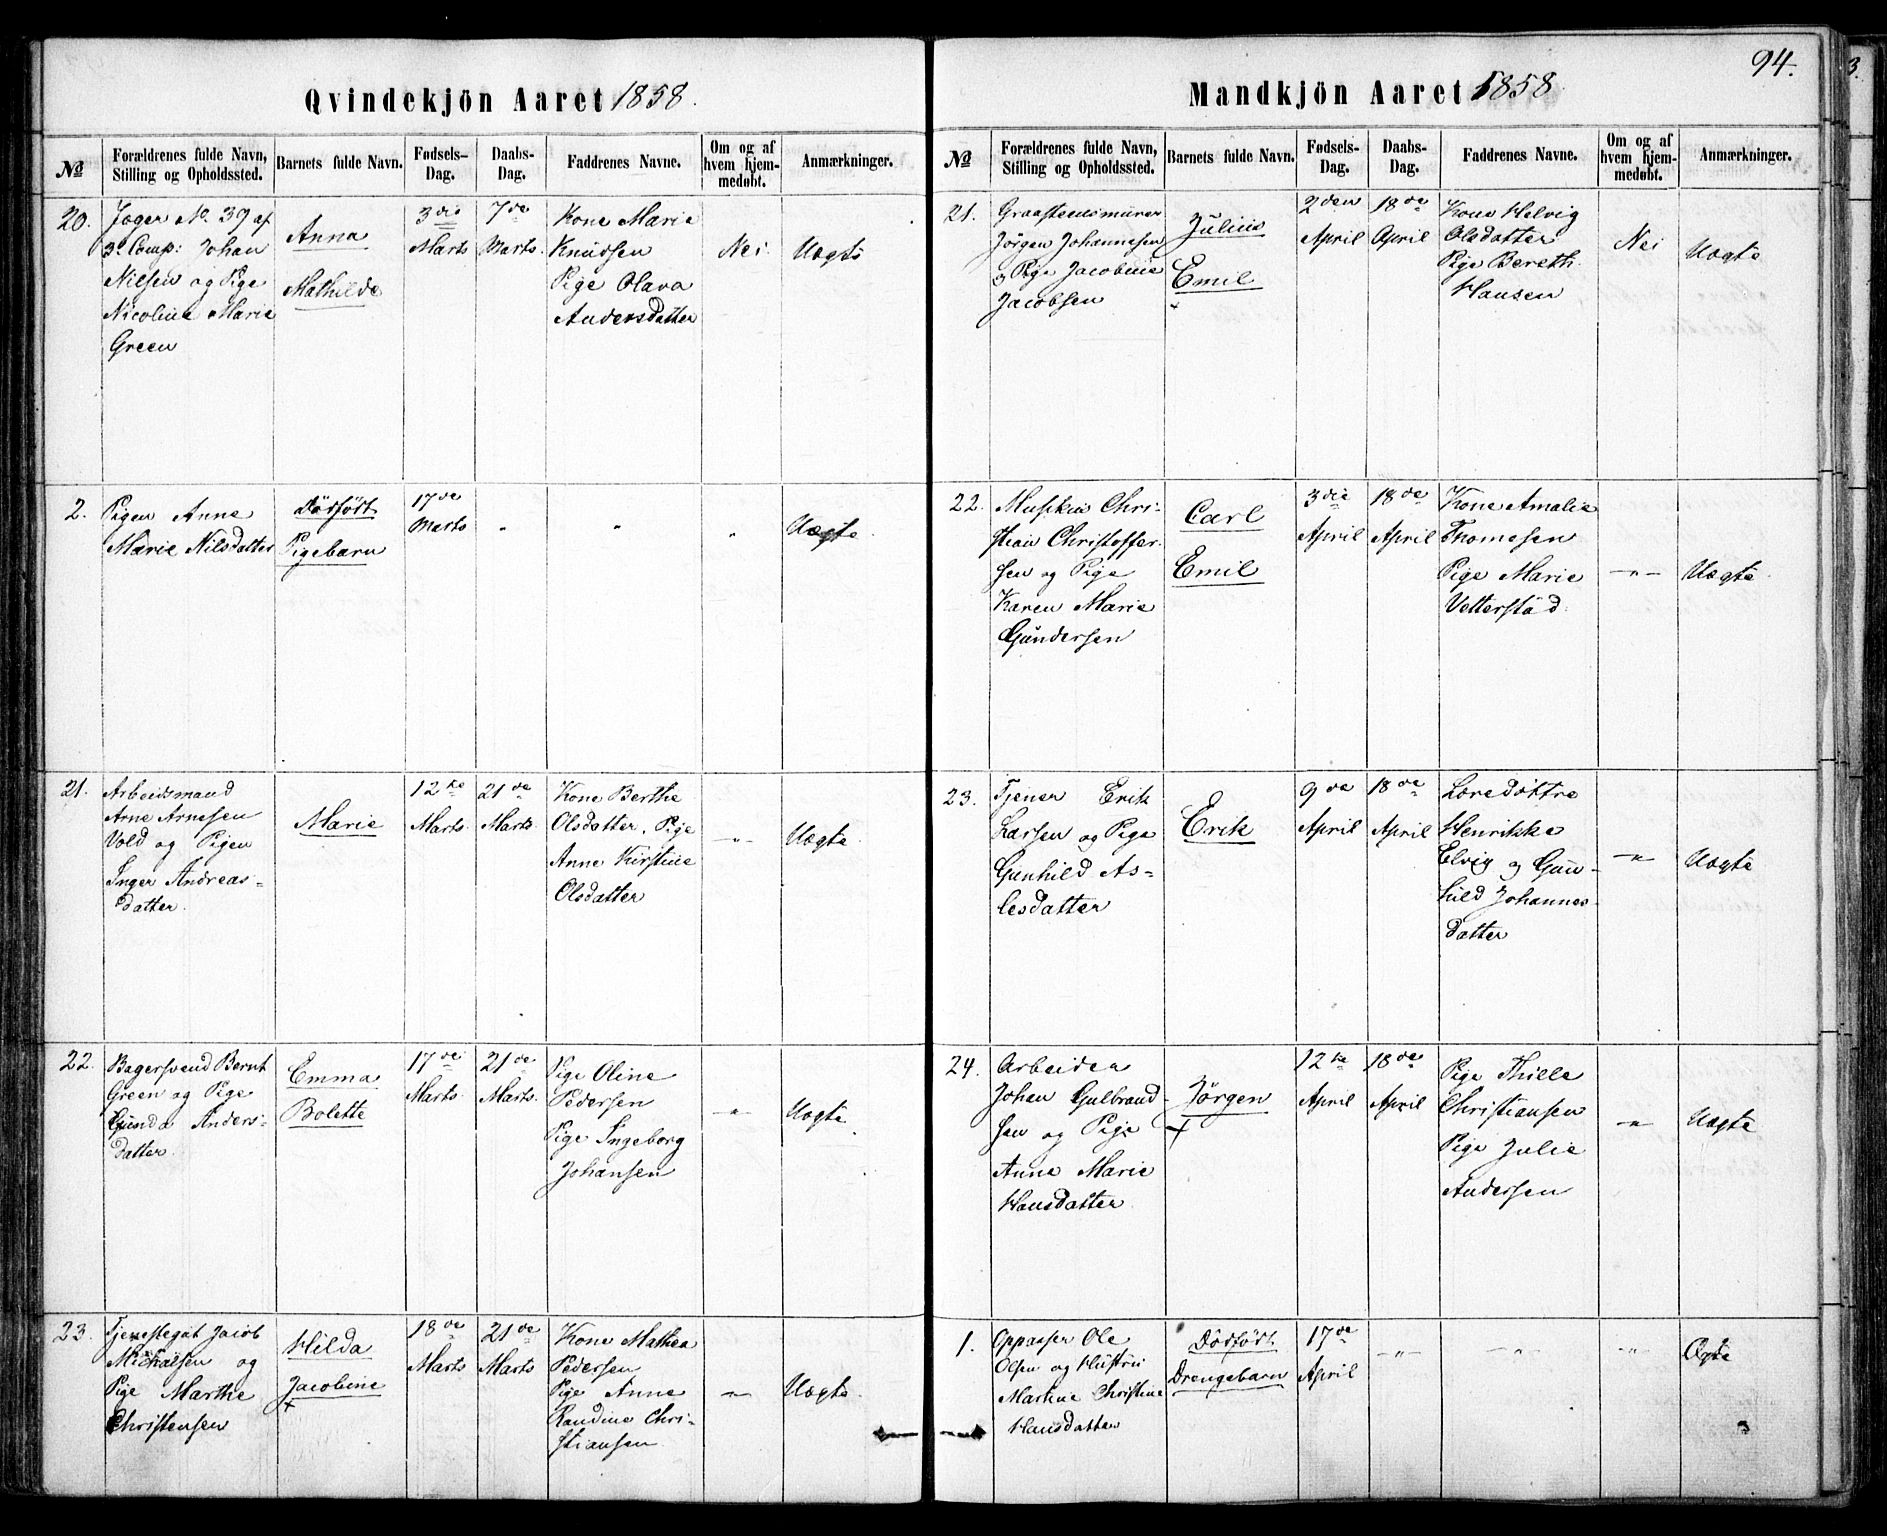 94.
Qvindekjön Aaret 1858.
№
Forældrenes fulde Navn,
Stilling og Opholdssted.
Barnets fulde Navn.
Fødsels-
Dag.
Daabs-
Dag.
Faddrenes Navne.
Om og af
hvem hjem-
medøbt.
Anmærkninger.
20.
Jæger No. 39 af
3e Comp: Johan
Nielsen og Pige
Nicoline Marie
Green
Anna
Mathilde
3die
Marts
7de
Marts.
Kone Marie
Knudsen
Pige Olava
Andersdatter
Nei.
Uægte
2.
Pigen Anne
Marie Nilsdatter
Dödfödt
Pigebarn
17de
Marts
"
"
"
Uægte.
21.
Arbeidsmand
Arne Arnesen
Vold og Pigen
Inger Andreas-
datter.
Marie
12te
Marts.
21de
Marts.
Kone Berthe
Olsdatter. Pige
Anne Kirstine
Olsdatter
—"—
Uægte.
22.
Bagersvend Bernt
Green og Pige
Gunda Anders-
datter.
Emma
Bolette
17de
Marts.
21de
Marts.
Pige Oline
Pedersen
Pige Ingeborg
Johansen
—"—
Uægte
23.
Tjenestegut Jacob
Michalsen og
Pige Marthe
Christensen
Hilda
Jacobine
+
18de
Marts
21de
Marts
Kone Mathea
Pedersen
Pige Anne
Randine Chri-
stiansen.
—"—
Uægte.
Mandkjön Aaret 1858
№
Forældrenes fulde Navn,
Stilling og Opholdssted.
Barnets fulde Navn.
Fødsels-
Dag.
Daabs-
Dag.
Faddrenes Navne.
Om og af
hvem hjem-
medøbt.
Anmærkninger.
21.
Graasteensmurer
Jörgen Johannesen
og Pige Jacobine
Jacobsen
Julius
Emil
+
2den
April
18de
April
Kone Helvig
Olsdatter
Pige Bereth.
Hansen
Nei
Uægte
22.
Musikus Chri-
stian Christoffer-
sen og Pige
Karen Marie
Gundersen
Carl
Emil
3die
April
18de
April
Kone Amalie
Thomesen
Pige Marie
Vetterstad.
—"—
Uægte.
23.
Tjener Erik
Larsen og Pige
Gunhild As-
lesdatter
Erik
9de
April
18de
April
Henrikke
Elvig og Gun-
hild Johannes-
datter
—"—
Uægte
24.
Arbeider
Johan Gulbrand-
sen og Pige
Anne Marie
Hansdatter.
Jörgen
+
12te
April
18de
April
Pige Thille
Christiansen
Pige Julie
Andersen
—"—
Uægte
1.
Oppasser Ole
Olsen og Hustru
Martine Christine
Hansdatter
Dödfödt
Drengebarn
17de
April
—"—
—"—
—"—
Ægte